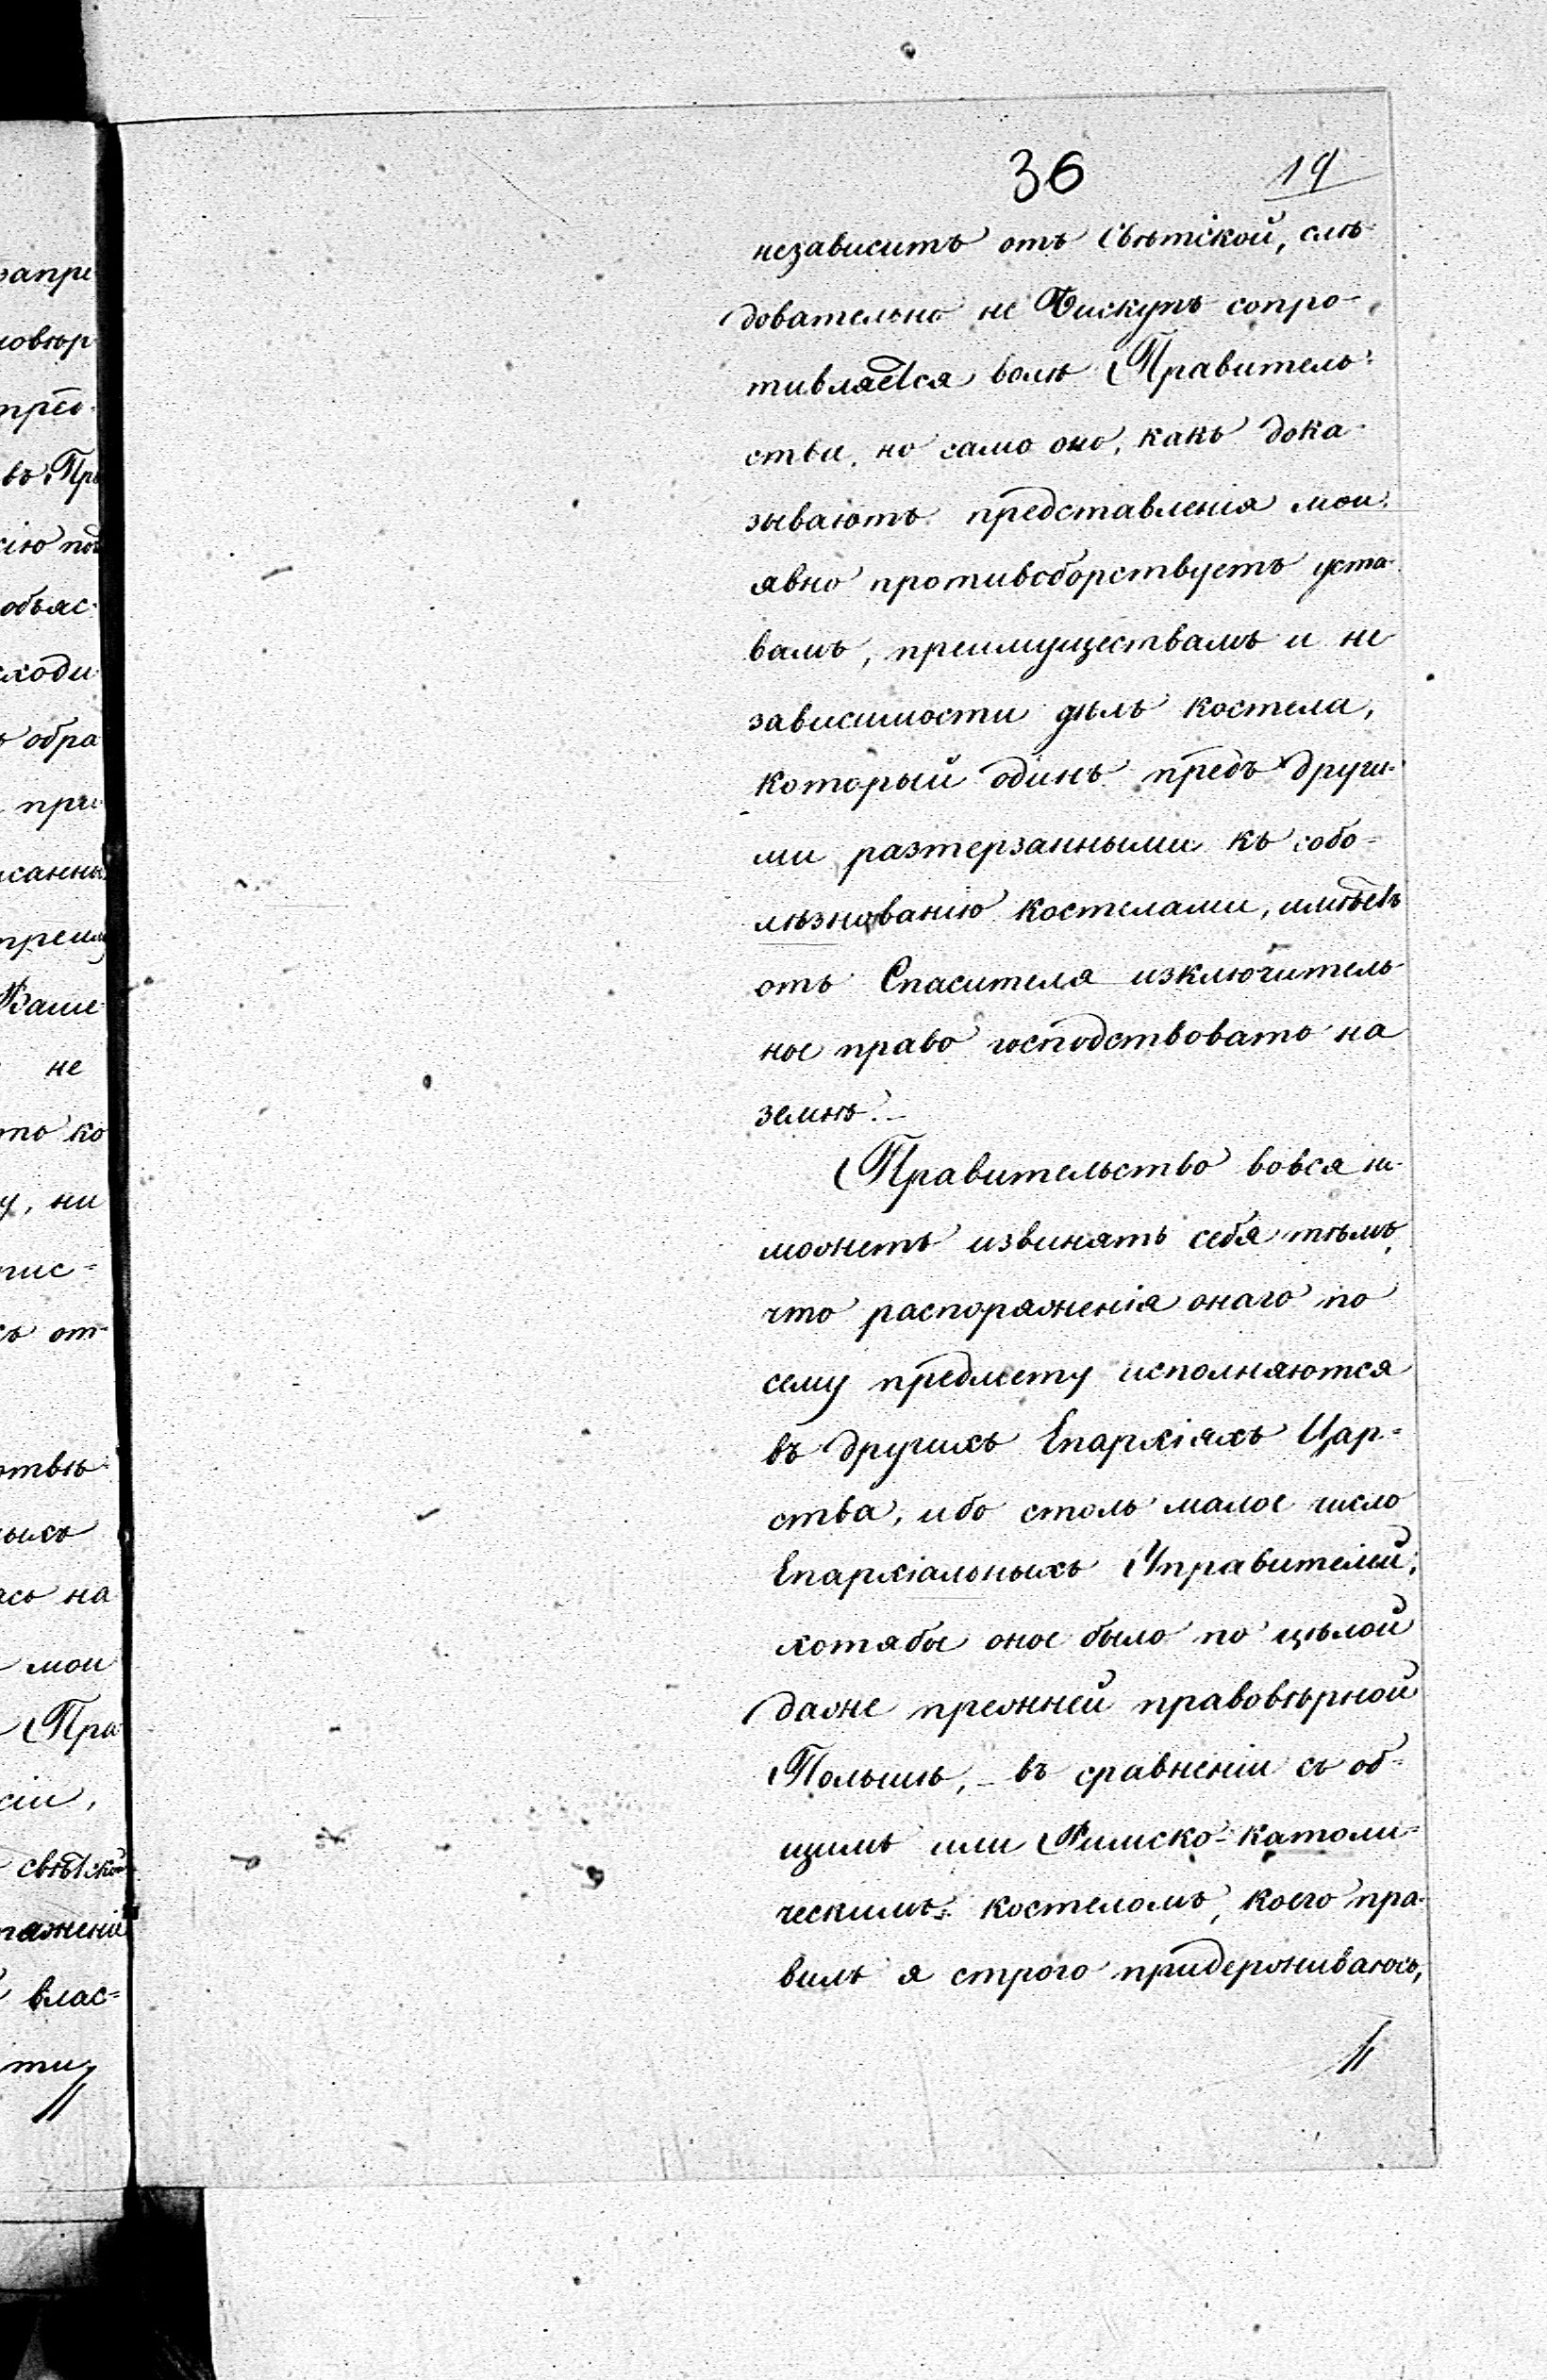 36 19
независитъ отъ Свѣтской, слѣ-
довательно не Бискупъ сопро-
тивляется волѣ Правитель-
ства, но само оно, какъ дока-
зываютъ представленія мои,
явно противоборствуетъ уста-
вамъ, преимуществамъ и не
зависимости дѣлъ костела,
который одинъ предъ други-
ми разтерзанными къ собо-
лѣзнованію костелами, имѣетъ
отъ Спасителя изключитель-
ное право господствовать на
землѣ.-
Правительство вовся не-
можетъ извинять себя тѣмъ,
что распоряженія онаго по
сему предмету исполняются
въ другихъ Епархіяхъ Цар-
ства, ибо столь малое число
Епархіальныхъ Управителей,
хотябы оное было по цѣлой
даже прежней правовѣрной
Польшѣ, - въ сравненіи съ об-
щимъ или Римско-католи-
ческимъ костеломъ, коего пра-
вилъ я строго придерживаюсь,
запре
новѣр
въ Пр
сію под
объяс-
сходи
ъ обра
при
исанны
Ваше
не
то ко
у, ни
пис-
съ от-
отвѣ-
ыхъ
ась на
мои
Пра
сіи,
свѣтской
тяженій
влас-
ти